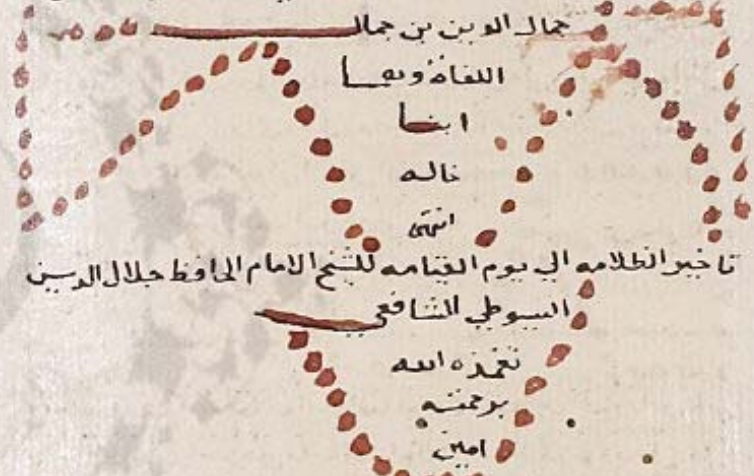 جمال الدين بن جمال
الثقاة وبها
ايضا
خاله
انتهى
تاخير الظلامه الى يوم القيامه للشيخ الامام الحافظ جلال الدين
السيوطي الشافعي
تغمده الله
برحمته
امين